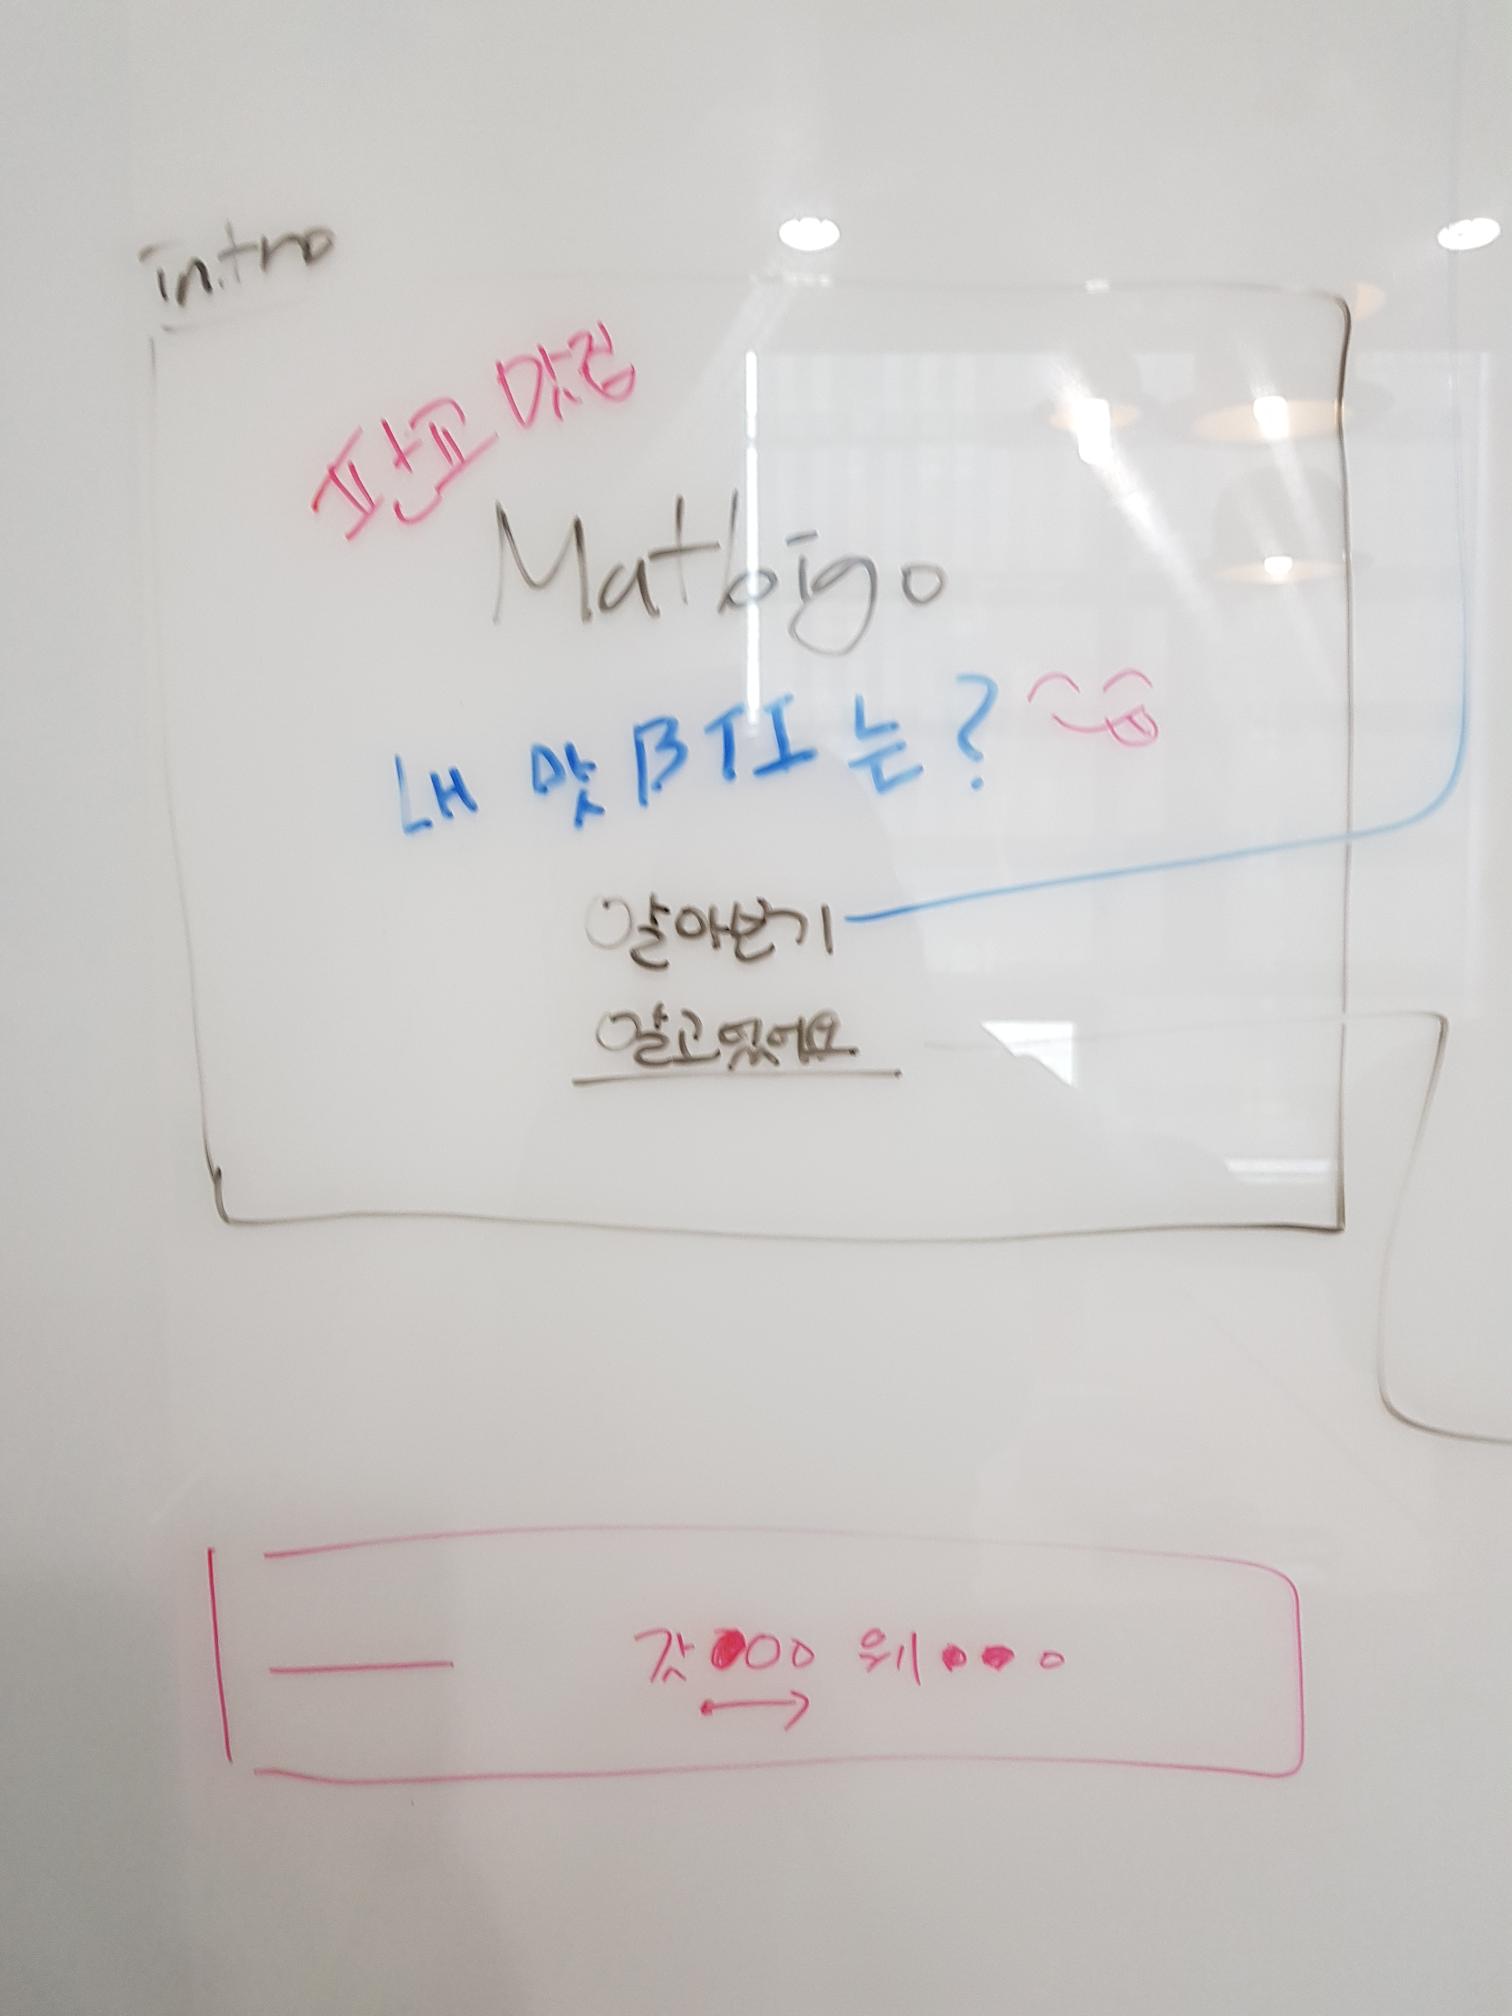 intro
판교 맛집
Matbigo
내 맛BTI는?
알아보기
알고있어요
갓●○○ 위●●○